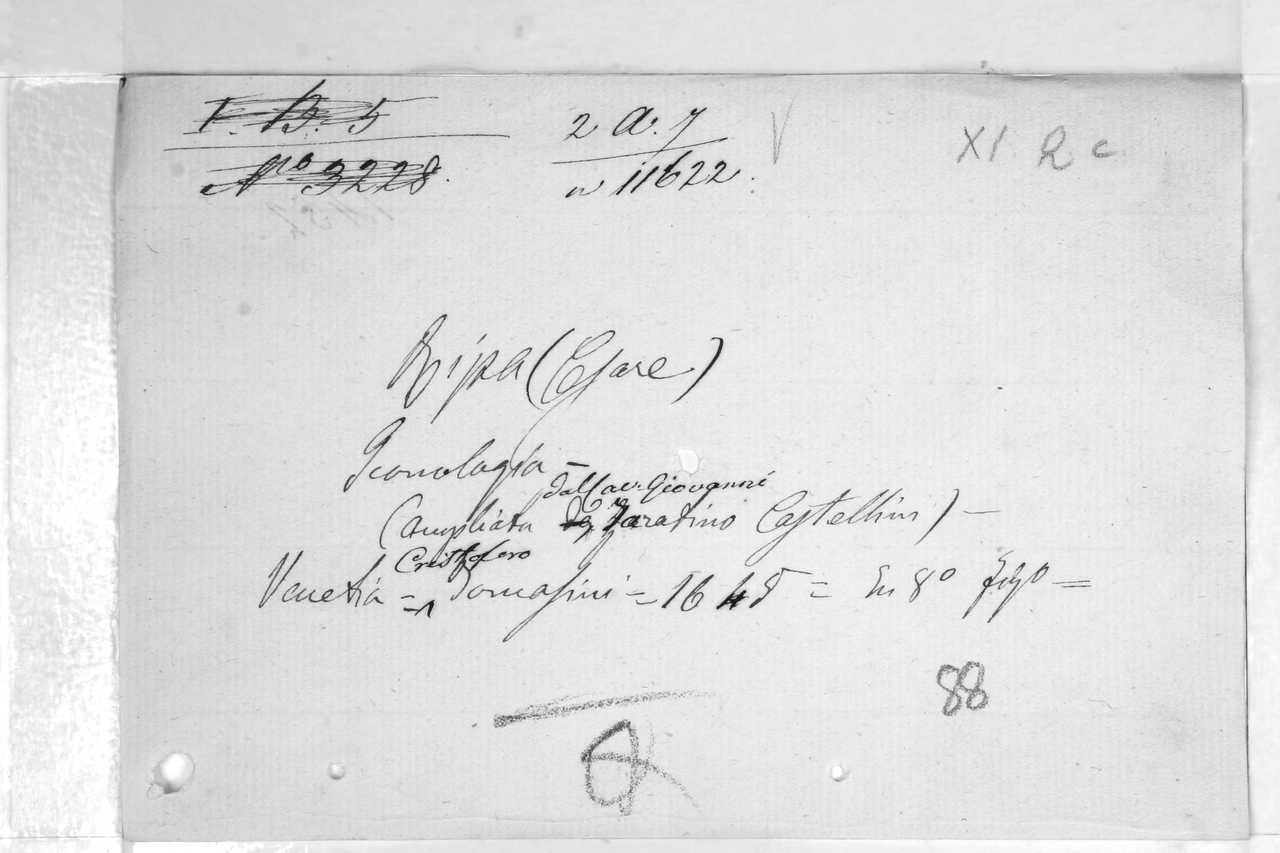 1. B. 5
Nro 3228.
2 A. 7
n 11622.
XI. R c
Ripa (Cesare)
Iconologia =
dal Cav. Giovanni
(Ampliata Zaratino Castellini) =
Cristoforo
Venetia = Tomasini = 1645 = In 8º figº =
88